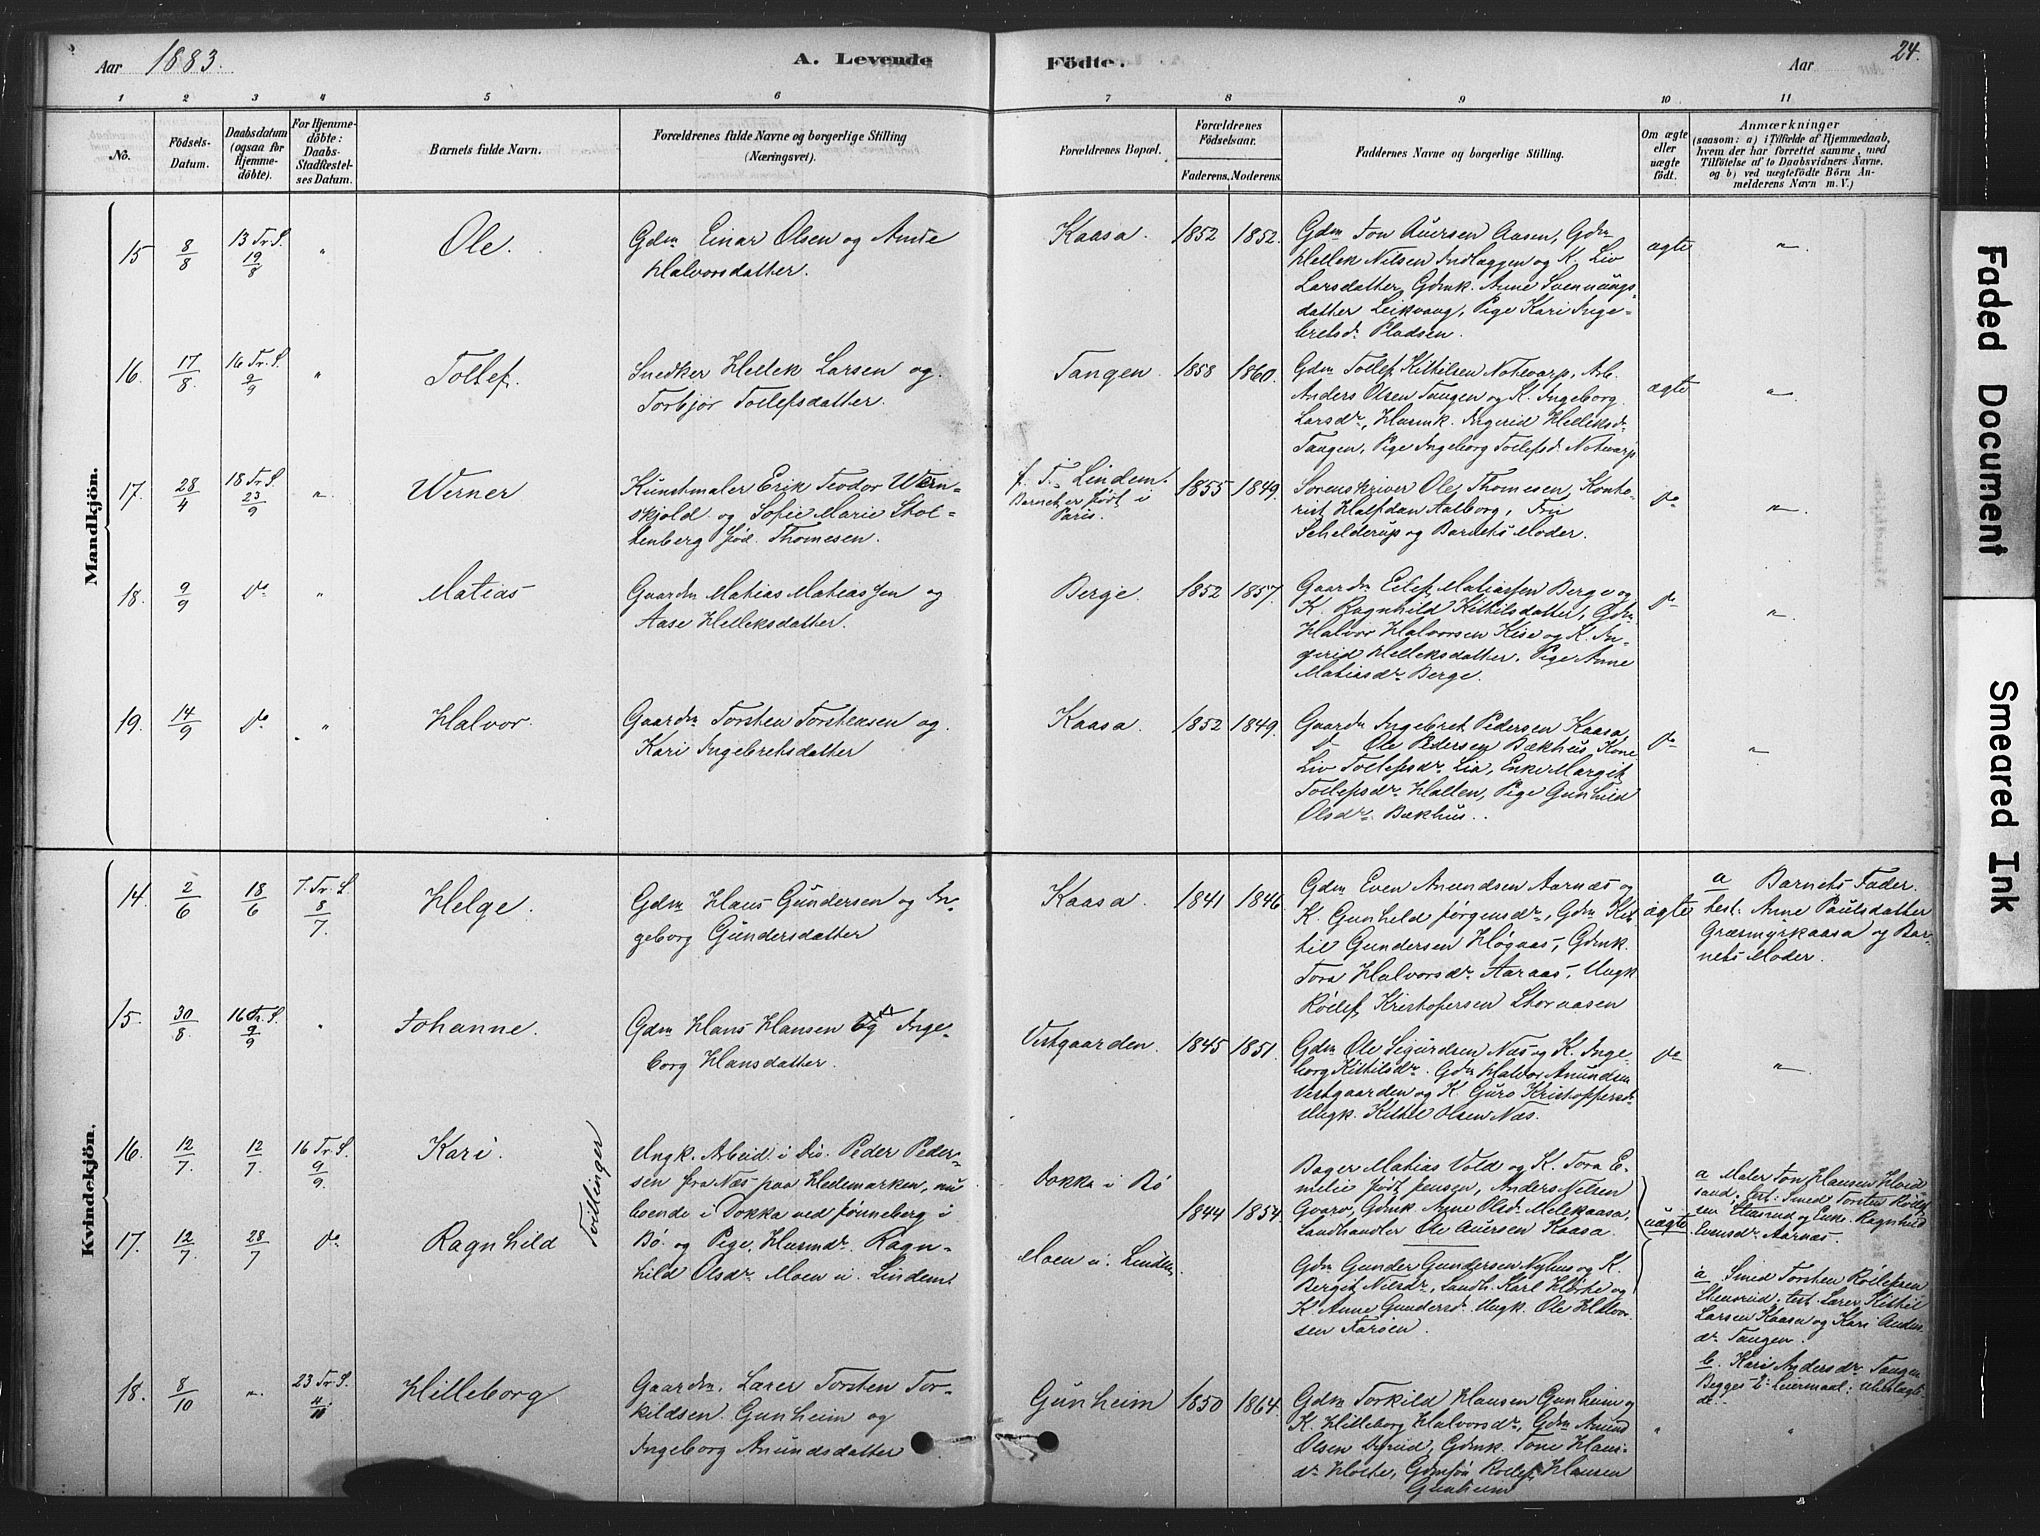 Aar 1883.
A. Levende
Födte.
Aar
24.
1 2 3 4 5 6 7 8 9 10 11
No.
Födsels-
Datum.
Daabsdatum
(ogsaa for
Hjemme-
döbte).
For Hjemme-
döbte:
Daabs-
Stadfæstel-
ses Datum.
Barnets fulde Navn.
Forældrenes fulde Navne og borgerlige Stilling
(Næringsvei).
Forældrenes Bopæl.
Forældrenes
Födselsaar.
Faderens. Moderens.
Faddernes Navne og borgerlige Stilling.
Om ægte
eller
uægte
födt.
Anmærkninger
(saasom: a) i Tilfælde af Hjemmedaab,
hvem der har forrettet samme, med
Tilföielse af to Daabsvidners Navne,
og b) ved uægtefödte Börn An-
melderens Navn m. V.)
Mandkjön.
15 8/8 13 Tr. S. 19/8 " Ole.
Gdm Einar Olsen og Anne
Halvorsdatter.
Kaasa. 1852 1852.
Gdm Jon Auersen Aasen, Gdm
Hellek Nilsen Indlæggen og K. Liv
Larsdatter, Gdmk. Anne Svennungs-
datter Leikvang, Pige Kari Inge-
bretsd. Pladsen.
ægte "
16. 17/8. 16 Tr. S. 9/9 " Tollef.
Snedker Hellek Larsen og
Torbjør Tollefsdatter.
Tangen. 1858 1860.
Gdm Tollef Kittilsen Notevarp, Arb.
Anders Olsen Tangen og K. Ingeborg
Larsdr, Husmk. Ingerid Helleksdr
Tangen, Pige Ingeborg Tollefsd. Notevarp
ægte "
17. 28/4 18 Tr. S. 23/9 " Werner
Kunstmaler Erik Teodor Wern-
skjold og Sofie Marie Stol-
tenberg fød. Thomesen.
f. T. Lindem.
Barnet er født i
Paris.
1855 1849.
Sorenskriver Ole Thomesen, Konto-
rist Halfdan Aalborg, Fru
Schelderup og Barnets Moder.
do "
18. 9/9 do " Matias
Gaardm Matias Matiassen og
Aase Helleksdatter.
Berge 1852 1857.
Gaardm Eilef Matiassen Berge og
K. Ragnhild Kittilsdatter, Gdm
Halvor Halvorsen Kise og K. In-
gerid Helleksdatter, Pige Anne
Matiasdr Berge.
do "
19. 14/9 do " Halvor.
Gaardm Torsten Torstensen og
Kari Ingebretsdatter
Kaasa. 1852 1849.
Gaardm Ingebret Pedersen Kaasa
do Ole Pedersen Bækhus, Kone
Liv Tollefsdr Lia, Enke Margit
Tollefsdr Halten, Pige Gunhild
Olsdr Bækhus.
do "
Kvindekjön.
14. 2/6 18/6 7. Tr. S. 8/7. Helge.
Gdm Hans Gundersen og In-
geborg Gundersdatter
Kaasa. 1841 1846.
Gdm Even Anundsen Aarnæs og
K. Gunhild Jørgensdr, Gdm Kit-
til Gundersen Høgaas, Gdmk.
Tora Halvorsdr Aaraas, Ungk.
Roelef Kristofersen Storaasen
ægte
a Barnets Fader.
test: Anne Paulsdatter
Græsmyrkaasa og Bar-
nets Moder.
15. 30/8 16 Tr. S. 9/9 " Johanne.
Gdm Hans Hansen og Inge-
borg Hansdatter.
Vestgaarden. 1845 1851.
Gdm Ole Sigurdsen Næs og K. Inge-
borg Kittilsdr. Gdm Halvor Anundsen
Vestgaarden og K. Guro Kristoffersdr
Ungk. Kittil Olsen Næs.
do "
16. 12/7 12/7. 16 Tr. S. 9/9. Kari.
Tvillinger
Ungk. Arbeid i Div. Peder Peder-
sen fra Næs paa Hedemarken, nu
boende i Dokka ved Jønneberg i
Bø og Pige, Husmdr. Ragn-
hild Olsdr Moen u. Lindem.
Dokka i Bø
1844 1854.
Moen u. Lindem.
Bager Matias Vold og K. Tora E-
milie født Jensen, Anders Nilsen
Gvarv, Gdmk. Anne Olsd. Melekaasa,
Landhandler Ole Auersen Kaasa.
uægte
a Maler Jon Hansen
sand, test: Smed Torsten Roelef-
sen Stensrud og Enke Ragnhild
Evensdr Aarnæs.
17. 12/7 28/7 do Ragnhild
Gdm Gunder Gundersen Nyhus og K.
Berget Nilsdr, Landh. Karl Holte og
K. Anne Gundersd. Ungk. Ole Halvor-
sen Farøen.
a Smed Torsten Roelefsen
Stensrud, test. Lærer Kittil
Larsen Kaasa og Kari Anders-
dr Tangen.
b. Kari Andersdr Tangen
Begges 2 Leiermaal;
18. 8/10 " 23 Tr. S. Hilleborg
Gaardm. Lærer Torsten Tor-
kildsen Gunheim og
Ingeborg Anundsdatter
Gunheim 1850 1864.
Gdm Torkild Hansen Gunheim og
K. Hilleborg Halvorsdr, Gdm Anund
Olsen , Gdmk. Tone Hans-
dr Holte, Gdmsøn Roelef Hansen
Gunheim
" "
Faded Document
Smeared Ink